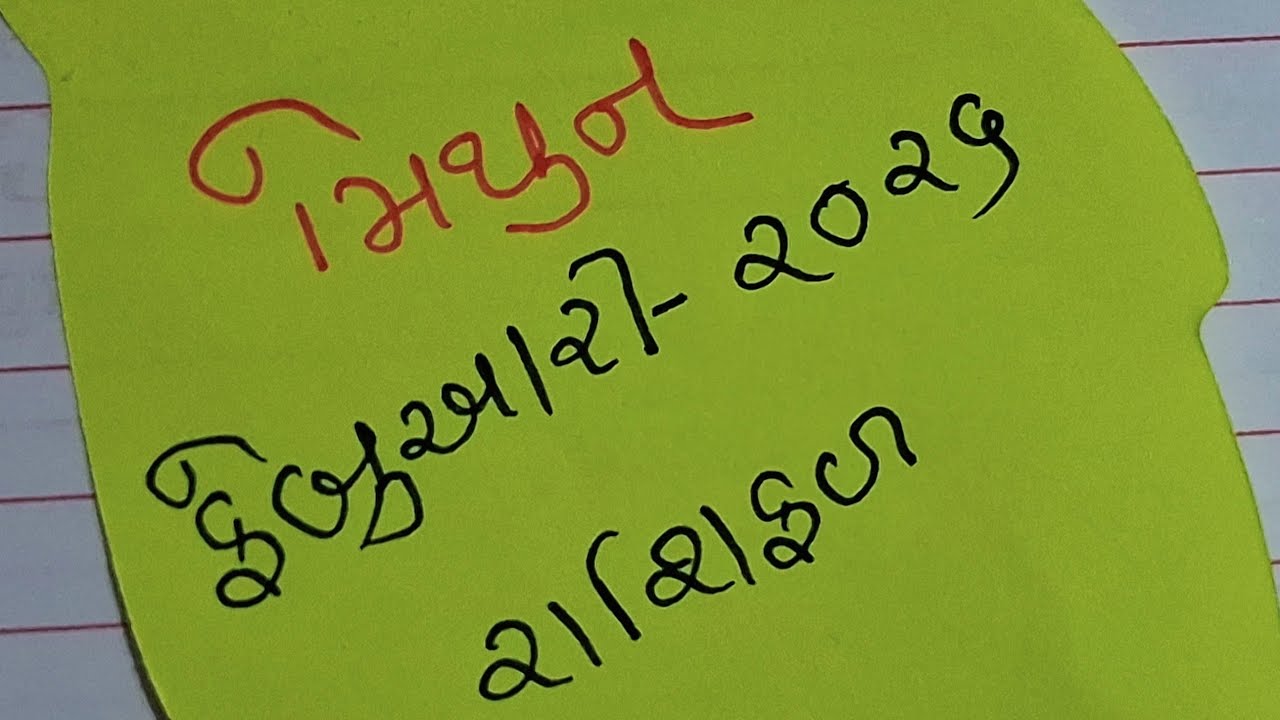 મિથુન
ફેબ્રુઆરી- ૨૦૨૫
રાશિફળ